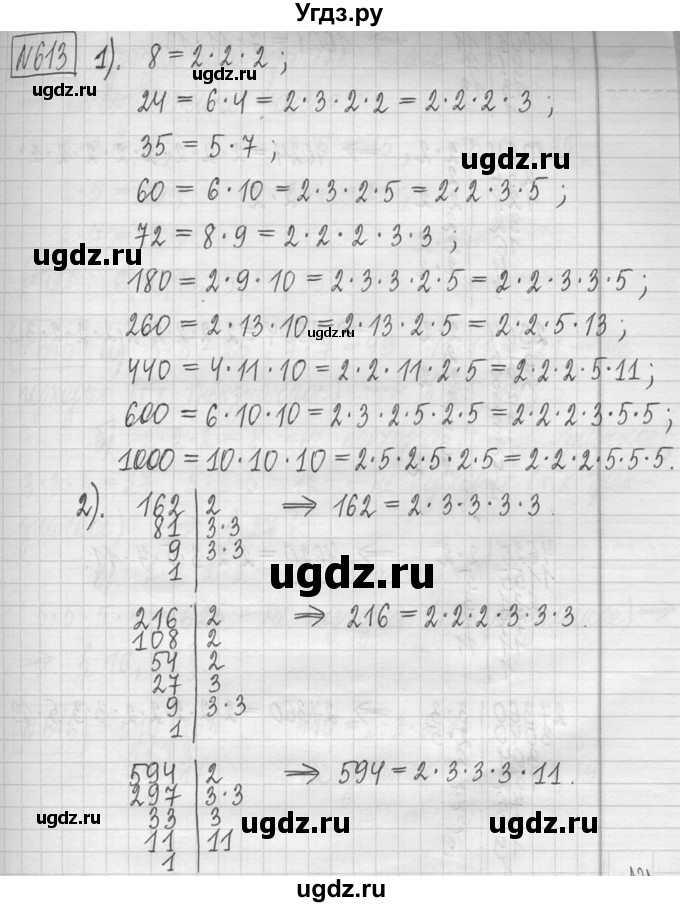 Угдз.ру
№613 1). 8 = 2·2·2 ;
ugdz.ru ugdz.ru
24 = 6·4 = 2·3·2·2 = 2·2·2·3 ;
35 = 5·7 ;
ugdz.ru
60 = 6·10 = 2·3·2·5 = 2·2·3·5 ;
72 = 8·9 = 2·2·2·3·3 ;
ugdz.ru
180 = 2·9·10 = 2·3·3·2·5 = 2·2·3·3·5 ;
260 = 2·13·10 = 2·13·2·5 = 2·2·5·13 ;
ugdz.ru
440 = 4·11·10 = 2·2·11·2·5 = 2·2·2·5·11 ;
600 = 6·10·10 = 2·3·2·5·2·5 = 2·2·2·3·5·5 ;
1000 = 10·10·10 = 2·5·2·5·2·5 = 2·2·2·5·5·5.
2). 162 | 2 ⟹ 162 = 2·3·3·3·3.
81 | 3·3
9 | 3·3
1 |
ugdz.ru
216 | 2 ⟹ 216 = 2·2·2·3·3·3.
108 | 2
54 | 2
27 | 3
9 | 3·3
1 |
594 | 2 ⟹ 594 = 2·3·3·3·11.
297 | 3·3
33 | 3
ugdz.ru ugdz.ru ugdz.ru
11 | 11
1 |
ugdz.ru